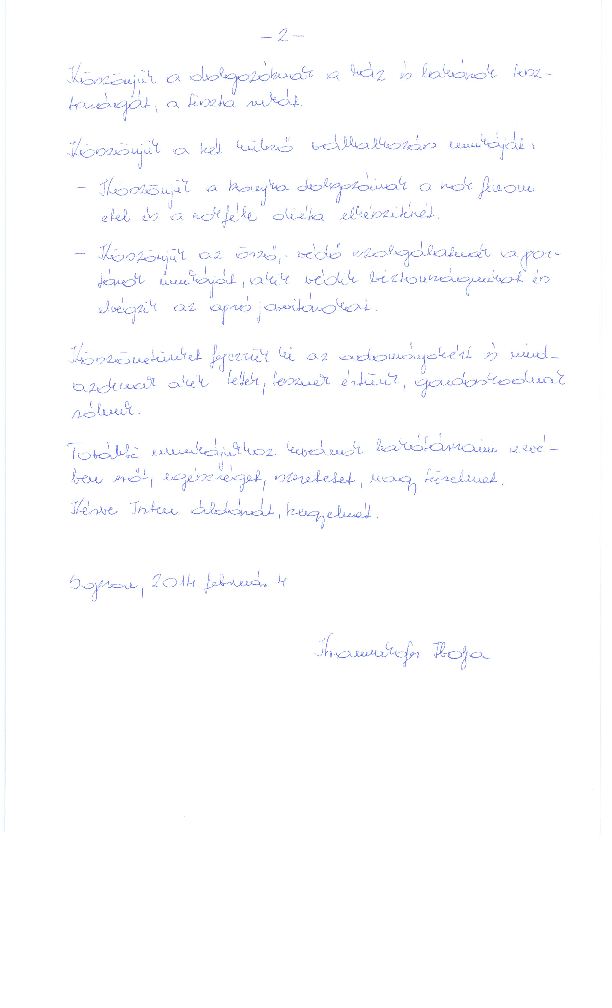 - 2 -
Köszönjük a dolgozóknak a ház és lakások tisz-
taságát, a tiszta ruhát.
Köszönjük a két külső vállalkozás munkáját:
- Köszönjük a konyha dolgozóinak a sok finom
étel és a sokféle diéta elkészítését.
- Köszönjük az őrző,- védő szolgálatnak a por-
tások munkáját, akik védik biztonságunkat és
elvégzik az apró javításokat.
Köszönetünket fejezzük ki az adományokért és mind-
azoknak akik tettek, tesznek értünk, gondoskodnak
rólunk.
További munkájukhoz kívánok lakótársaim nevé-
ben erőt, egészséget, szeretetet, nagy türelmet.
Kérve Isten áldását, kegyelmét.
Sopron, 2014 február 4
Ibolya